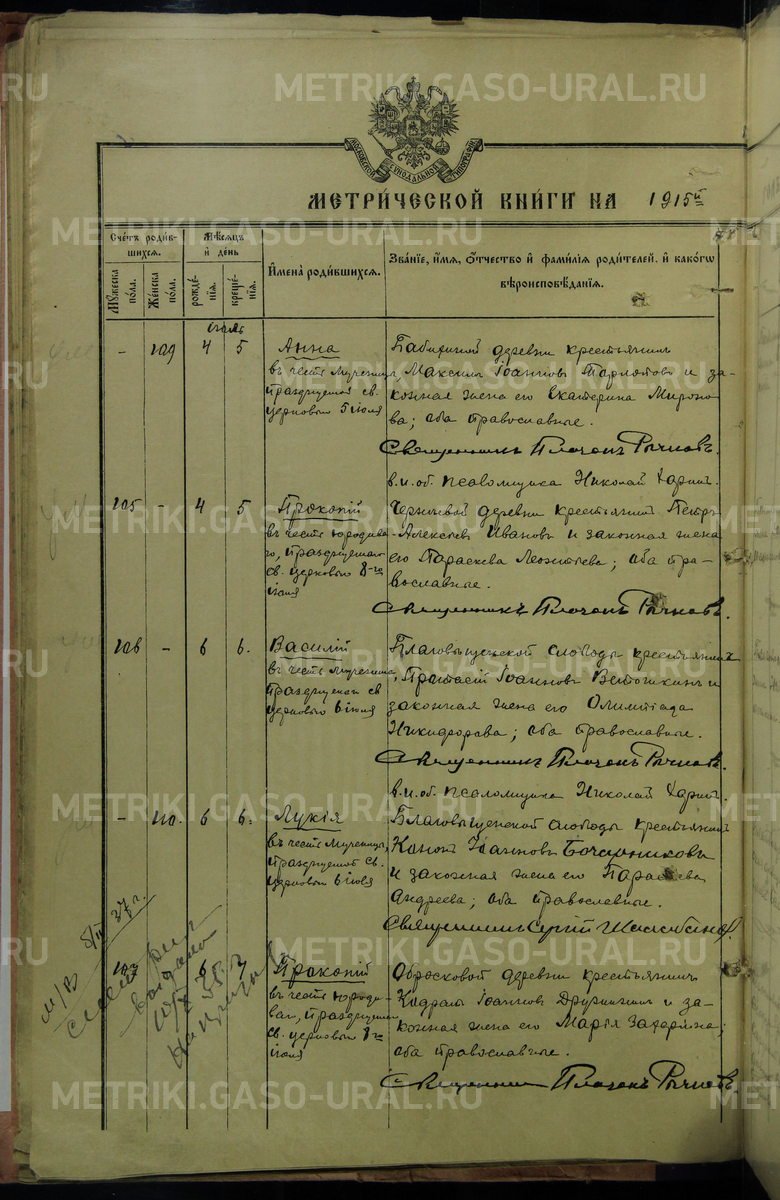 METRIKI.GASO-URAL.RU
МОСКОВСКОЙ СУНОДАЛЬНОЙ ТИПОГРАФІИ
МЕТРИ́ЧЕСКОЙ КНИ́ГИ НА 1915й
Сче́тъ роди́вшихся.
Мѣ́сяцъ и҆ де́нь
И҆мена̀ роди́вшихся.
Зва́ніе, и҆́мя, ѻ҆́тчество и҆ фами́лія роди́телей. и҆ како́гѡ вѣроисповѣ́данія.
Мꙋ́жеска по́ла.
Же́нска по́ла.
рожде́нїя.
креще́нїя.
Іюль
- 109 4 5 Анна
въ честь мученицы,
празднуемой св.
церковью 5 іюля
деревни крестьянинъ
Максимъ Іоанновъ и за-
конная жена его Екатерина Мироно-
ва; оба православные.
Священникъ Платонъ Рычковъ.
в.и.об. псаломщика Николай
105 - 4 5 Прокопій
въ честь юродива-
го, празднуемаго
св. церковью 8-го
іюля
деревни крестьянинъ Петръ
Алексѣевъ Ивановъ и законная жена
его Параскева Леонтьева; оба пра-
вославные.
Священникъ Платонъ Рычковъ.
106 - 6 6. Василій
въ честь мученика,
празднуемаго св
церковью 6 іюля
Благовѣщенской слободы крестьянинъ
Протасій Іоанновъ Ветошкинъ и
законная жена его Олимпіада
Никифорова; оба православные.
Священникъ Платонъ Рычковъ.
в.и.об. псаломщика Николай
- 110. 6 6. Лукія
въ честь мученицы,
празднуемой св.
церковью 6 іюля
Благовѣщенской слободы крестьянинъ
Кононъ Іоанновъ Бочарниковъ
и законная жена его Параскева
Андреева; оба православные.
Священникъ Сергій
107 6 7 Прокопій
въ честь юроди-
ваго, празднуемаго
св. церковью 8-го
іюля
Обросковой деревни крестьянинъ
Іоанновъ Дружининъ и за-
конная жена его Марія Захарьина;
оба православные.
Священникъ Платонъ Рычковъ.
37 г.